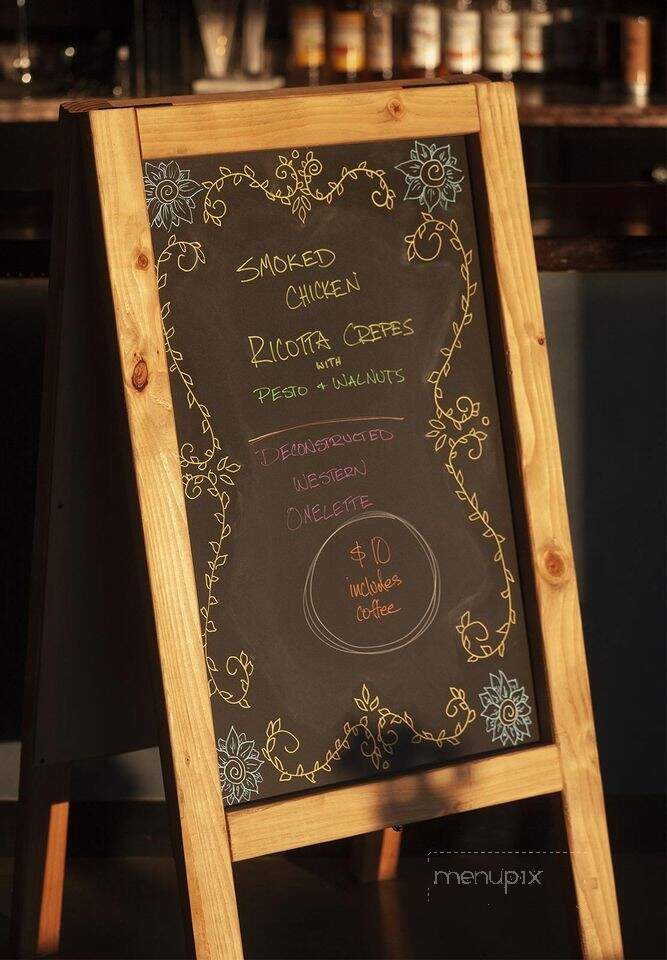 SMOKED
CHICKEN
RICOTTA CREPES
WITH
PESTO + WALNUTS
DECONSTRUCTED
WESTERN
OMELETTE
$10
includes
coffee
menupix